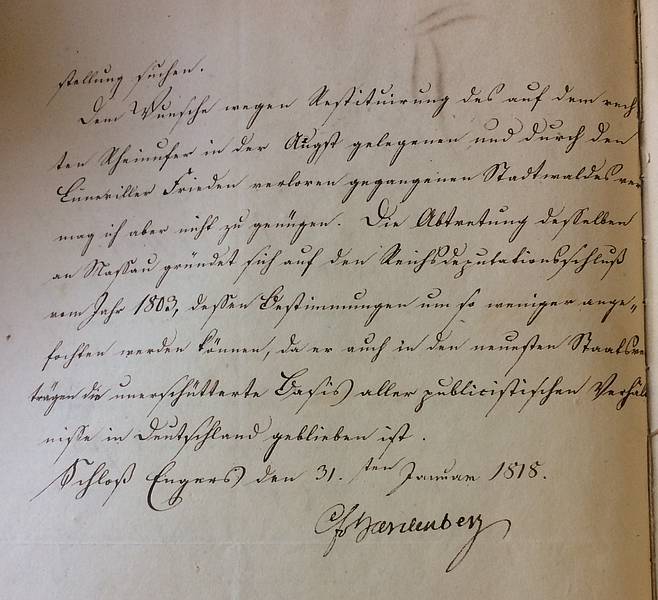 stellung suchen.
Dem Wunsche wegen Restituirung des auf dem rech
ten Rheinufer in der Augst gelegenen und durch den
Lüneviller Frieden verloren gegangenen Stadtwaldes ver
mag ich aber nicht zu genügen. Die Abtretung desselben
an Nassau gründet sich auf den Reichsdeputationsschluß
vom Jahr 1803, dessen Bestimmungen um so weniger ange„
fochten werden können, da er auch in den neuesten Staatsver
trägen die unerschütterte Basis aller publicistischen Verhält
nisse in Deutschland geblieben ist.
Schloß Engers den 31.ten Januar 1818.
CFvHardenberg